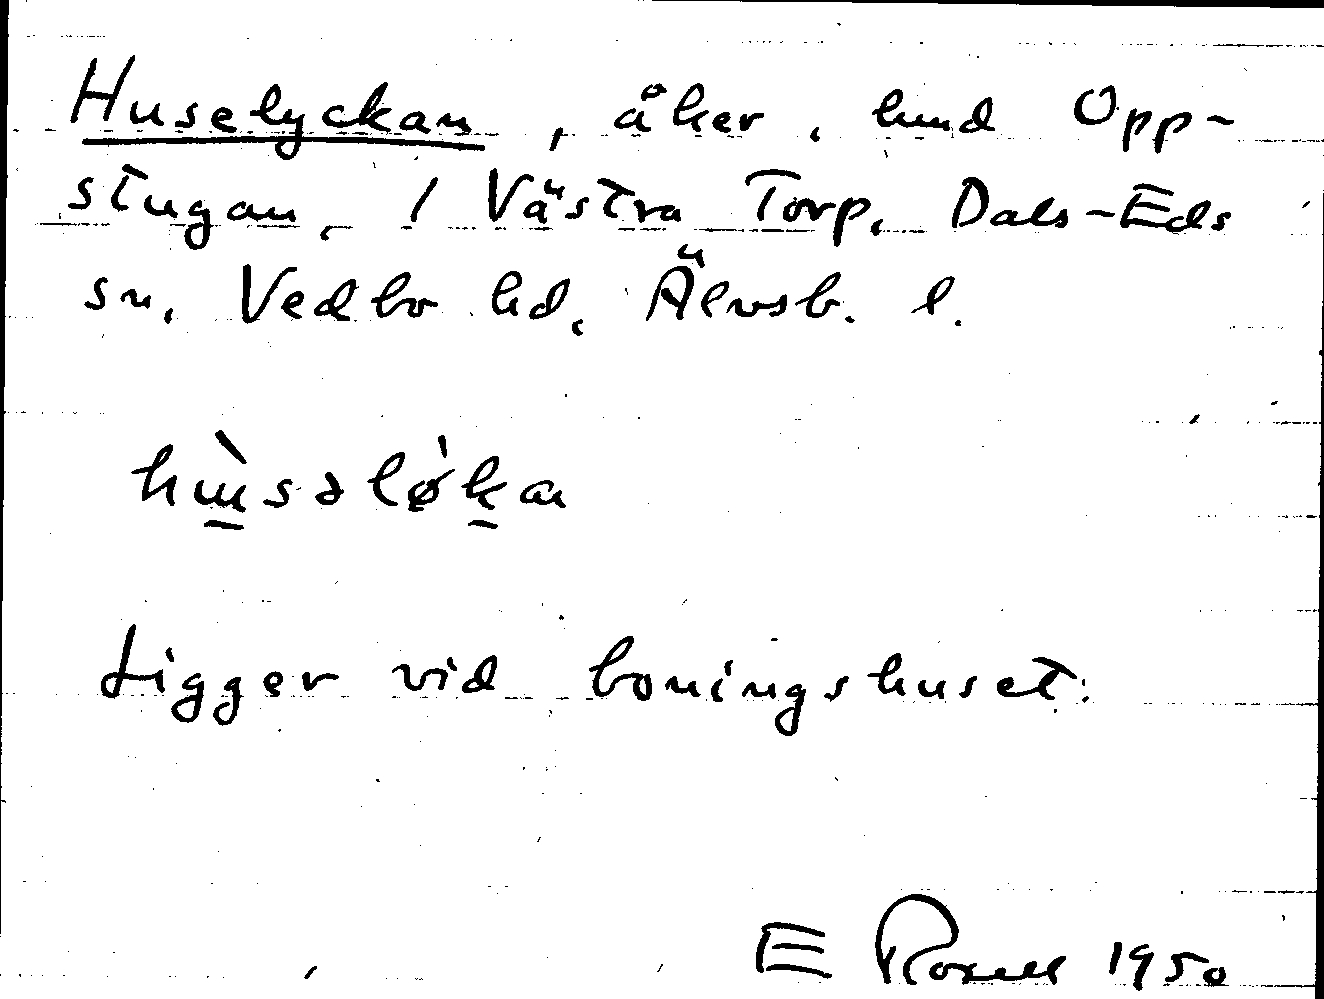 Huselyckan, åker, hmd Opp-
stugan, 1 Västra Torp, Dals-Eds
sn, Vedbo hd, Älvsb. l.
Ligger vid boningshuset.
E Roxell 1950